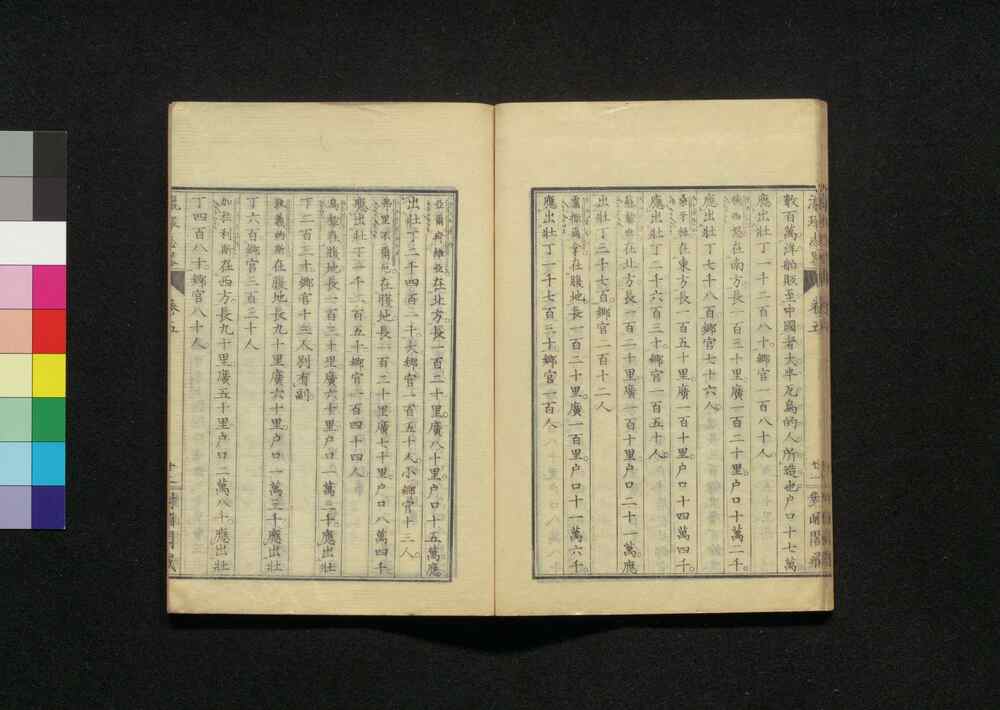 數百萬洋舶販至中國者大半瓦烏的人所造也户口十七萬
應出壯丁一十二百八十鄉官一百八十人
在南方長一百三十里廣一百二十里户口十萬二千
應出壯丁七千八百鄉官七十六人
在東方長一百五十里廣一百十里户口十四萬四千
應出壯丁二千六百三十鄉官一百五十人
在腹地長一百二十里廣一百十里户口二十一萬應
出壯丁三千七百鄉官二百十二人
在腹地長一百二十里廣一百里户口十一萬六千
應出壯丁一千七百三十鄉官一百人
卷五
在北方長一百二十里廣八十里户口十五萬應
出壯丁二千四百二十大鄉官一百五十人小鄉官十三人
弗里不爾厄在腹地長一百二十里廣七十里户口八萬四千
應出壯丁一千二百五十鄉官一百四十四人
在腹地長一百二十里廣六十里户口一萬二千應出壯
丁二百三十鄉官十三人別有副
在腹地長九十里廣六十里户口一萬三千應出壯
丁六百鄉官三百三十人
加拉利斯在西方長九十里廣五十里户口二萬八千應出壯
丁四百八十鄉官八十人
卷五